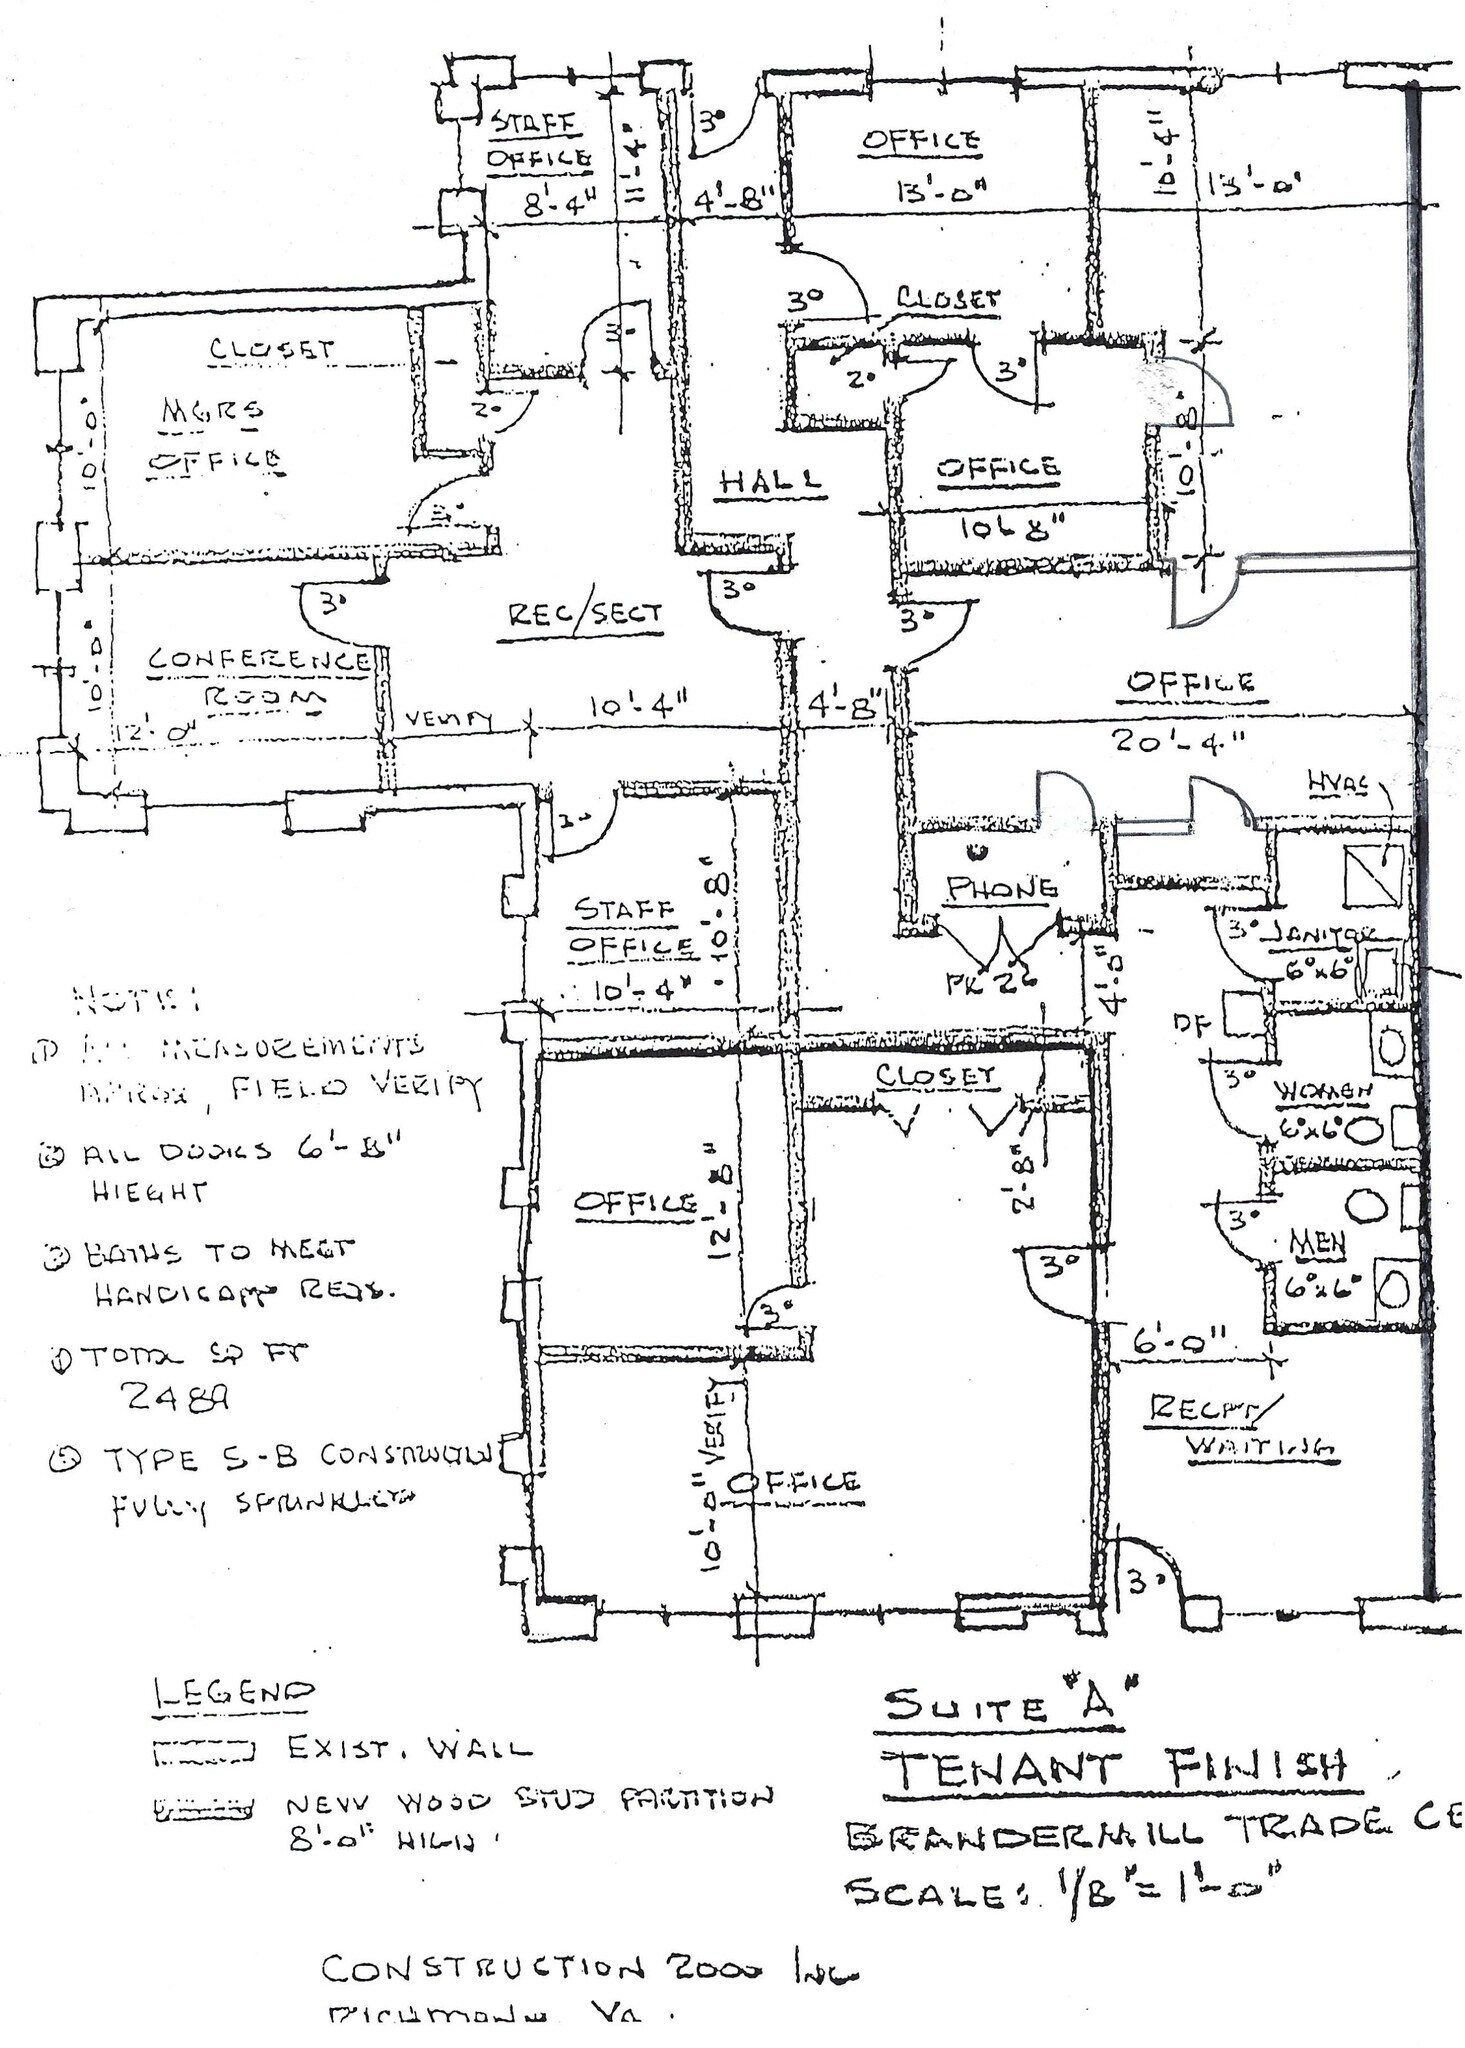 STAFF
OFFICE
8'-4"
11'-4"
3°
4'-8"
OFFICE
13'-0"
10'-4"
13'-0"
3°
CLOSET
2°
3°
3°
CLOSET
MGRS
OFFICE
10'-0"
2°
3°
HALL
OFFICE
10'-8"
10'-8"
3°
3°
3°
REC/SECT
CONFERENCE
ROOM
10'-0"
12'-0"
VERIFY
10'-4"
4'-8"
OFFICE
20'-4"
HVAC
3°
STAFF
OFFICE
10'-4"
10'-8"
PHONE
PR 26
4'-0"
3°
JANITOR
6°x6°
DF
3°
WOMEN
6°x6°
3°
MEN
6°x6°
CLOSET
2'-8"
OFFICE
12'-8"
3°
3°
6'-0"
RECPT/
WAITING
10'-0" VERIFY
OFFICE
3°
NOTE:
① ALL MEASUREMENTS
APROX, FIELD VERIFY
② ALL DOORS 6'-8"
HIEGHT
③ BATHS TO MEET
HANDICAPP REQS.
TOTAL SQ FT
2489
⑤ TYPE 5-B CONSTRUCTION
FULLY SPRINKLED
LEGEND
EXIST. WALL
NEW WOOD STUD PARTITION
8'-0" HIGH.
SUITE "A"
TENANT FINISH
BRANDERMILL TRADE CE
SCALE: 1/8" = 1'-0"
CONSTRUCTION 2000 INC
RICHMOND VA.